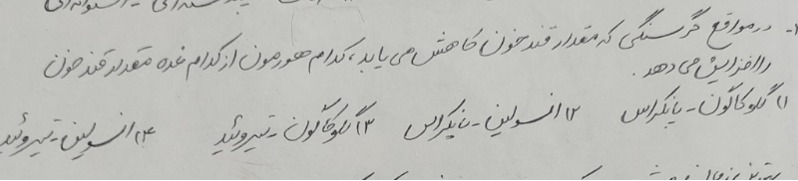 ۱- در مواقع گرسنگی که مقدار قند خون کاهش می یابد، کدام هورمون از کدام غده مقدار قند خون
را افزایش می دهد.
۱) گلوکاگون - پانکراس ۲) انسولین - پانکراس ۳) گلوکاگون - تیروئید ۴) انسولین - تیروئید